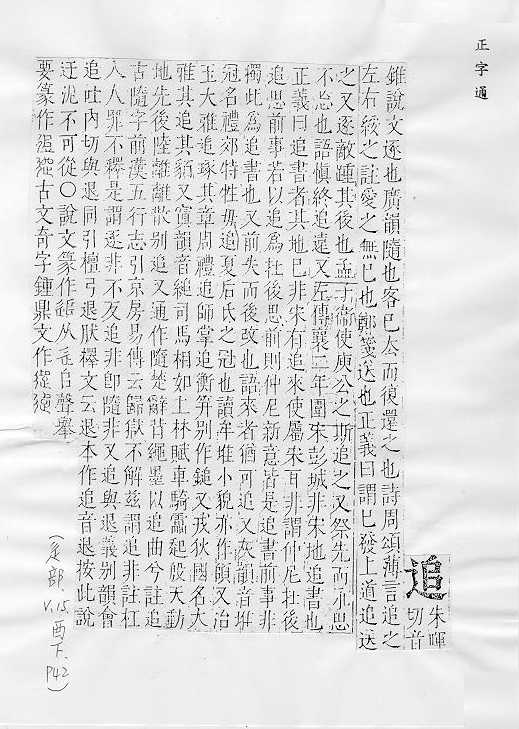 正字通
追
朱暉
切音
錐說文逐也廣韻隨也客已去而復還之也詩周頌薄言追之
左右綏之註愛之無已也鄭箋送也正義曰謂已發上道追送
之又逐敵踵其後也孟子衞使庾公之斯追之又祭先而永思
不忘也語愼終追遠又左傳襄元年圍宋彭城非宋地追書也
正義曰追書者其地已非宋有追來使屬宋耳非謂仲尼在後
追思前事若以追爲在後思前則仲尼新意皆是追書前事非
獨此爲追書也又前失而後改也語來者猶可追又灰韻音堆
冠名禮郊特牲毋追夏后氏之冠也讀牟堆小貌亦作頧又治
玉大雅追琢其章周禮追師掌追衡笄別作鎚又戎狄國名大
雅其追其貊又寘韻音縋司馬相如上林賦車騎靁起殷天動
地先後陸離離散別追又通作隨楚辭背繩墨以追曲今註追
古隨字前漢五行志引京房易傳云歸獄不解茲謂追非註枉
入人罪不釋是謂遂非不反追非卽隨非又追與退義別韻會
追吐內切與退同引檀弓退狀釋文云退本作追音退按此說
迂泥不可從〇說文篆作从辵𠂤聲舉
要篆作古文奇字鍾鼎文作
(辵部 V.15 酉下 P42)